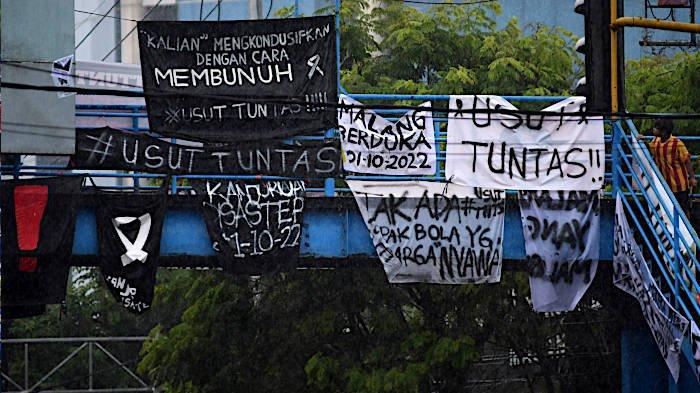 "KALIAN" MENGKONDUSIFKAN
DENGAN CARA
MEMBUNUH
#USUT TUNTAS!!!!
#USUT TUNTAS
MALANG
BERDUKA
01-10-2022
USUT
TUNTAS!!
KANJURUHAN
DISASTER
1-10-22
USUT
TAK ADA
SEPAK BOLA YG
SEHARGA NYAWA